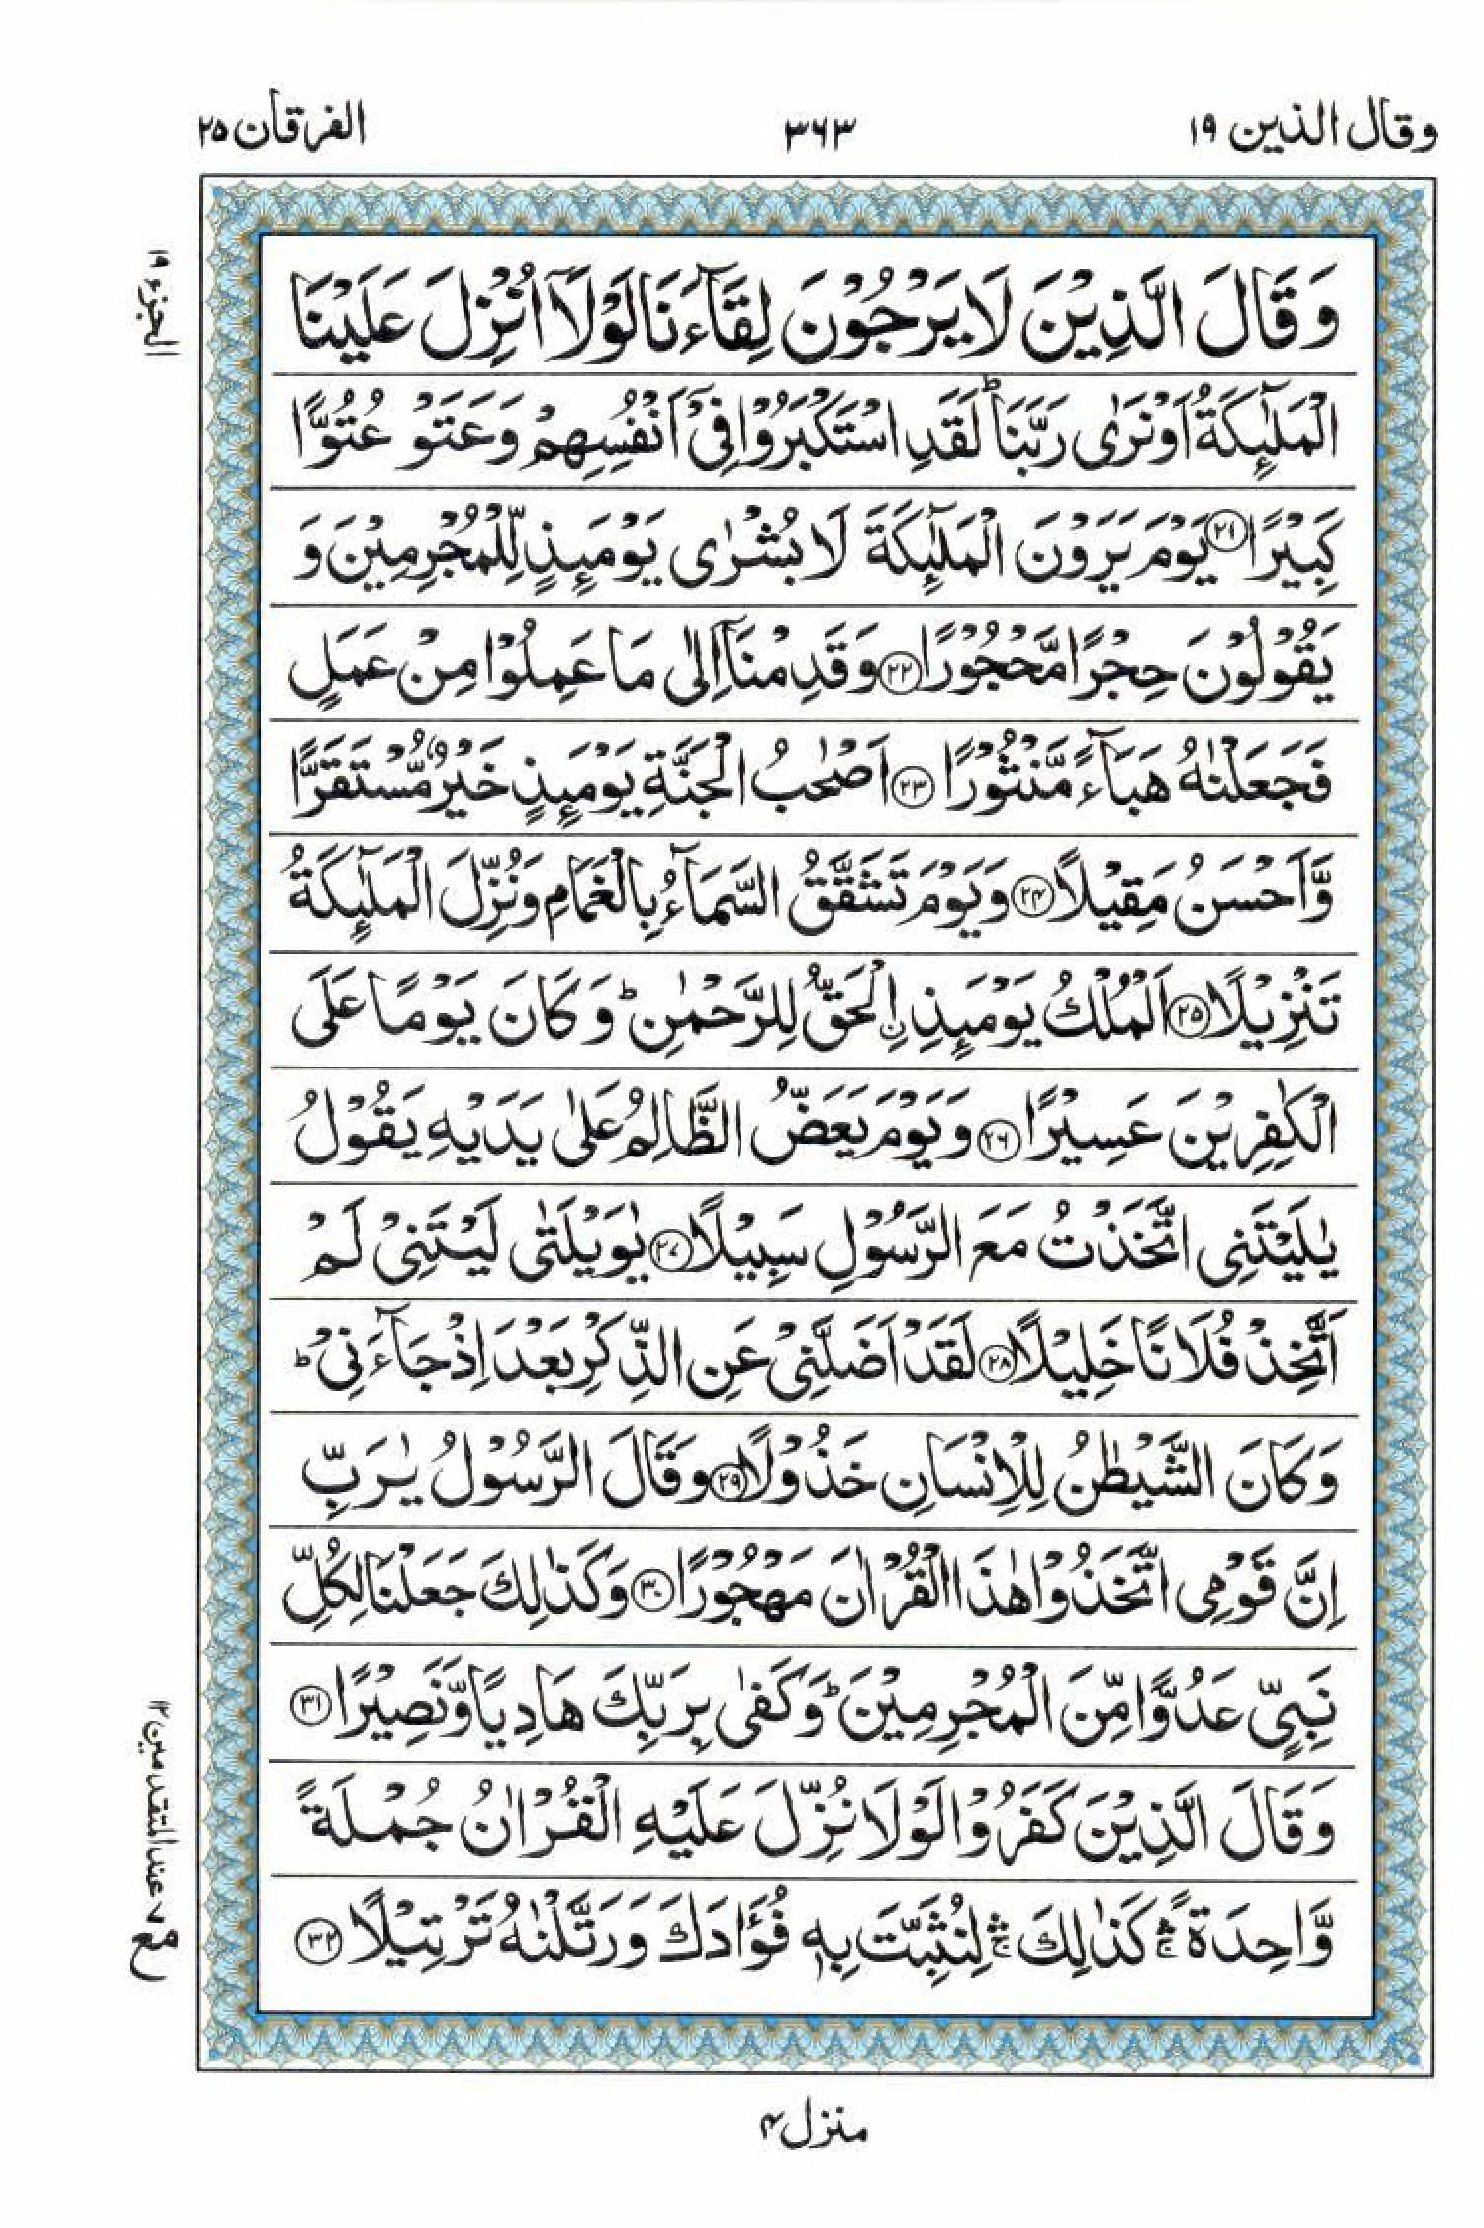 وقال الذين ١٩
٣٦٣
الفرقان ٢٥
الجزء ١٩
وَقَالَ الَّذِيْنَ لَا يَرْجُوْنَ لِقَآءَنَا لَوْلَاۤ اُنْزِلَ عَلَيْنَا
الْمَلٰٓئِكَةُ اَوْ نَرٰى رَبَّنَا ؕ لَقَدِ اسْتَكْبَرُوْا فِيْۤ اَنْفُسِهِمْ وَعَتَوْ عُتُوًّا
كَبِيْرًا ﴿٢١﴾ يَوْمَ يَرَوْنَ الْمَلٰٓئِكَةَ لَا بُشْرٰى يَوْمَئِذٍ لِّلْمُجْرِمِيْنَ وَ
يَقُوْلُوْنَ حِجْرًا مَّحْجُوْرًا ﴿٢٢﴾ وَقَدِمْنَاۤ اِلٰى مَا عَمِلُوْا مِنْ عَمَلٍ
فَجَعَلْنٰهُ هَبَآءً مَّنْثُوْرًا ﴿٢٣﴾ اَصْحٰبُ الْجَنَّةِ يَوْمَئِذٍ خَيْرٌ مُّسْتَقَرًّا
وَّاَحْسَنُ مَقِيْلًا ﴿٢٤﴾ وَيَوْمَ تَشَقَّقُ السَّمَآءُ بِالْغَمَامِ وَنُزِّلَ الْمَلٰٓئِكَةُ
تَنْزِيْلًا ﴿٢٥﴾ اَلْمُلْكُ يَوْمَئِذِ اِ۟لْحَقُّ لِلرَّحْمٰنِ ؕ وَكَانَ يَوْمًا عَلَى
الْكٰفِرِيْنَ عَسِيْرًا ﴿٢٦﴾ وَيَوْمَ يَعَضُّ الظَّالِمُ عَلٰى يَدَيْهِ يَقُوْلُ
يٰلَيْتَنِى اتَّخَذْتُ مَعَ الرَّسُوْلِ سَبِيْلًا ﴿٢٧﴾ يٰوَيْلَتٰى لَيْتَنِيْ لَمْ
اَتَّخِذْ فُلَانًا خَلِيْلًا ﴿٢٨﴾ لَقَدْ اَضَلَّنِيْ عَنِ الذِّكْرِ بَعْدَ اِذْ جَآءَنِيْ ؕ
وَكَانَ الشَّيْطٰنُ لِلْاِنْسَانِ خَذُوْلًا ﴿٢٩﴾ وَقَالَ الرَّسُوْلُ يٰرَبِّ
اِنَّ قَوْمِى اتَّخَذُوْا هٰذَا الْقُرْاٰنَ مَهْجُوْرًا ﴿٣٠﴾ وَكَذٰلِكَ جَعَلْنَا لِكُلِّ
نَبِيٍّ عَدُوًّا مِّنَ الْمُجْرِمِيْنَ ؕ وَكَفٰى بِرَبِّكَ هَادِيًا وَّنَصِيْرًا ﴿٣١﴾
وَقَالَ الَّذِيْنَ كَفَرُوْا لَوْلَا نُزِّلَ عَلَيْهِ الْقُرْاٰنُ جُمْلَةً
وَّاحِدَةً ۛۚ كَذٰلِكَ ۛۚ لِنُثَبِّتَ بِهٖ فُؤَادَكَ وَرَتَّلْنٰهُ تَرْتِيْلًا ﴿٣٢﴾
مع ٧ عند المتقدمين ١٢
منزل ٤